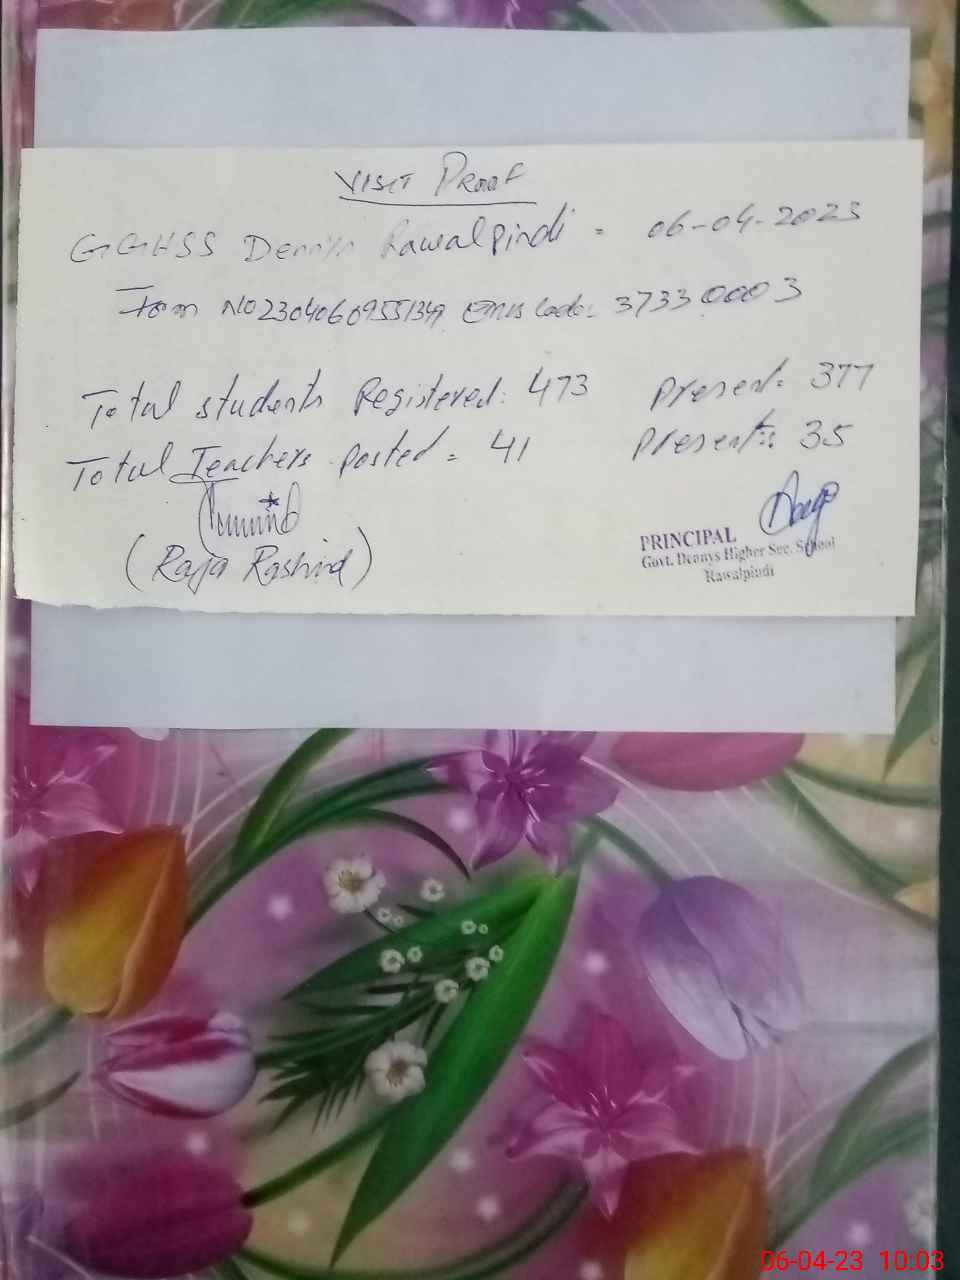 VISIT PROOF
GGHSS Dennys Rawalpindi = 06-04-2023
Form NO 23040609551349 Emis Code: 37330003
Total students Registered: 473 Present: 377
Total Teachers posted = 41 Present: 35
(Raja Rashid)
PRINCIPAL
Govt. Dennys Higher Sec. School
Rawalpindi
06-04-23 10:03